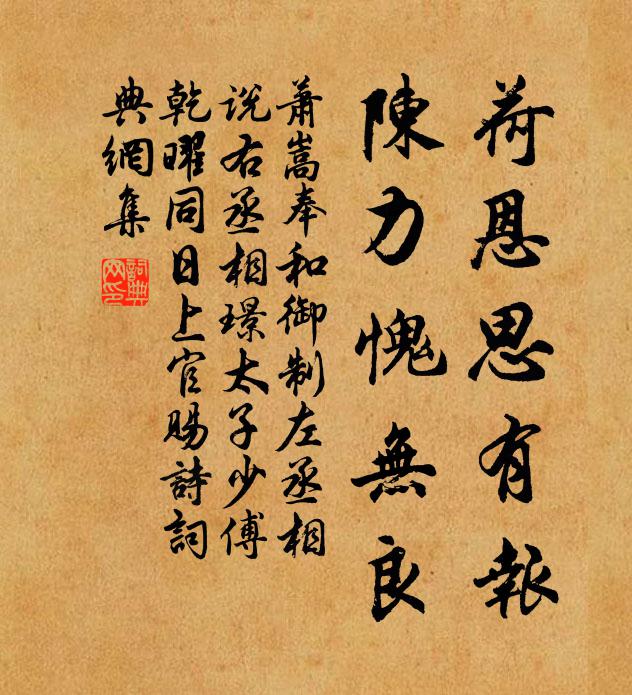 荷恩思有報
陳力愧無良
蕭嵩奉和御制左丞相
説右丞相璟太子少傅
乾曜同日上官賜詩詞
典網集
詞典
网印